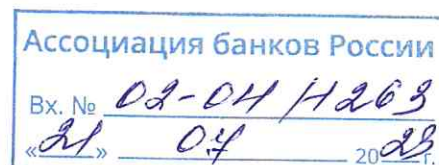 Ассоциация банков России
Вх. № 02-04/1263
«21» 07 2023г.